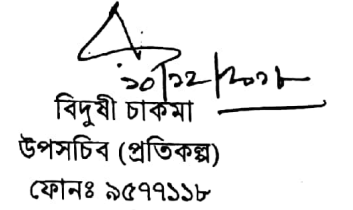 ১০/১২/২০১৮
বিদুষী চাকমা
উপসচিব (প্রতিকল্প)
ফোনঃ ৯৫৭৭১১৮